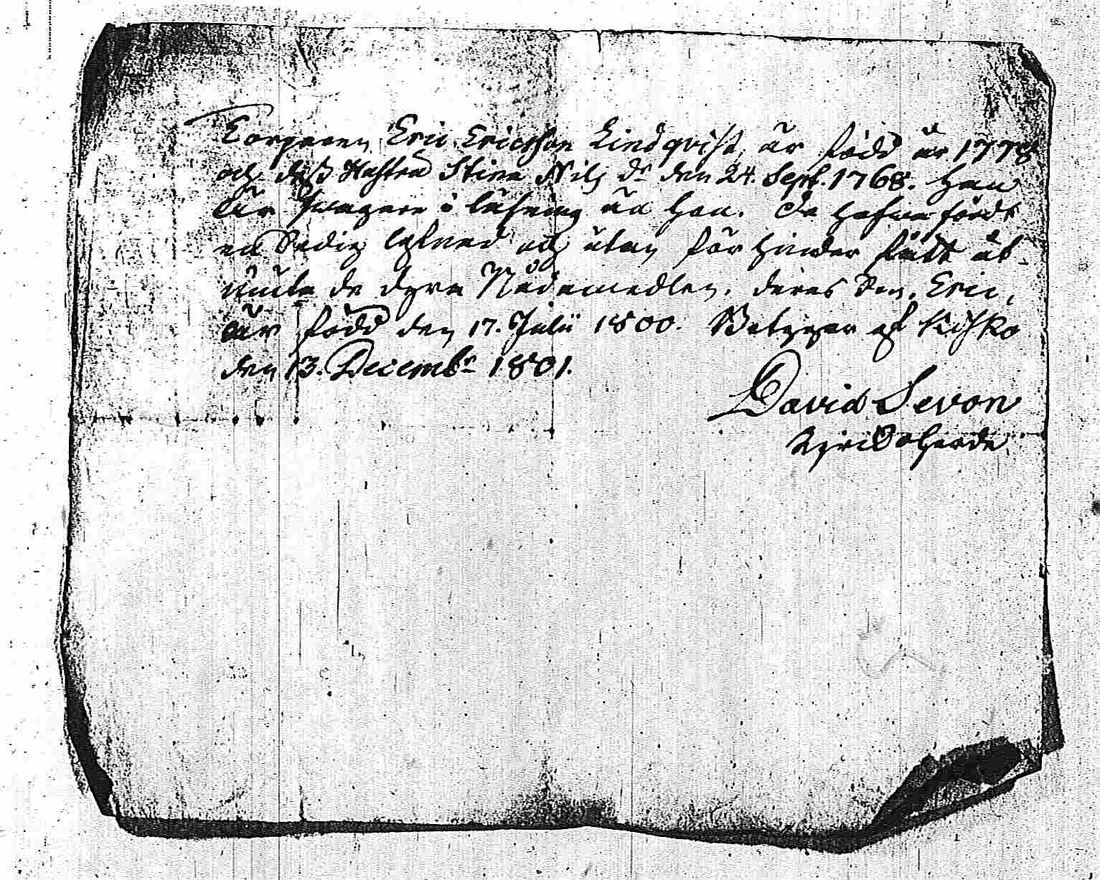 Torparen Eric Ericsson Lindqvist, är född år 1778
och dess Hustru Stina Nils dr den 24. Sept. 1768. Hon
är swagare i läsning än han. De hafwa fördt
en sedig lefnad och utan förhinder fått åt-
niuta de dyra Nådamedlen. deras Son, Eric,
är född den 17. Julii 1800. Betygar af Kisko
den 13. Decembr 1801.
David Sevon
Kyrkoherde